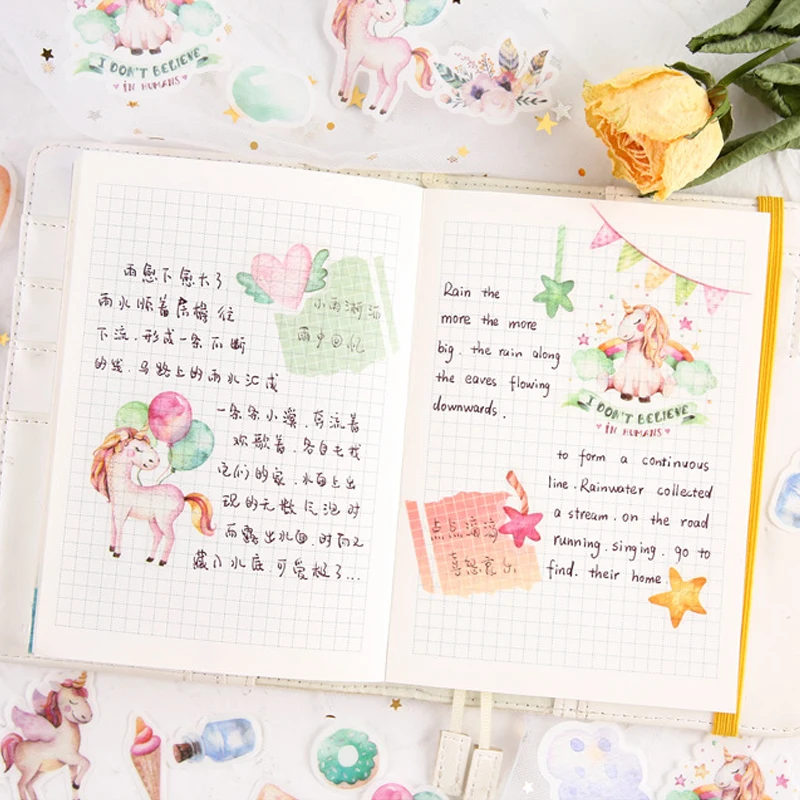 I DON'T BELIEVE
IN HUMANS
雨愈下愈大了
雨水顺着房檐往
下流，形成一条不断
的线，马路上的雨水汇成
一条条小溪，奔流着
欢歌着，各自去找
它们的家，水面上出
现的无数气泡时
而露出水面，时而又
藏入水底 可爱极了...
小雨淅沥
雨中回忆
Rain the
more the more
big. the rain along
the eaves flowing
downwards.
I DON'T BELIEVE
IN HUMANS
to form a continuous
line. Rainwater collected
a stream. on the road
running. singing. go to
find. their home.
点点滴滴
喜怒哀乐